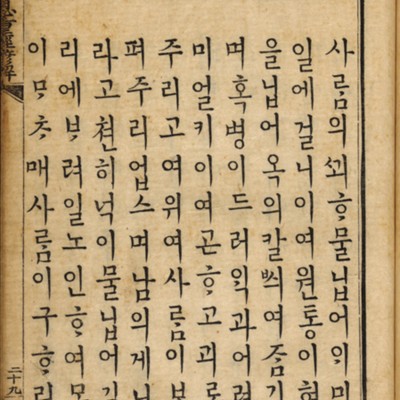 사ᄅᆞᆷ의ᄭᅬᄒᆞ물닙어ᄋᆡ미
일에걸니이여원통이
을닙어옥의칼ᄡᅴ여즘기
며혹병이드러ᄋᆡᆨ과어려
미얼키이여곤ᄒᆞ고괴로
주리고여위여사ᄅᆞᆷ이보
펴주리업스며남의게니
라고쳔히넉이물닙어
리에ᄇᆞ려일노인ᄒᆞ여모
이ᄆᆞᆺᄎᆞ매사ᄅᆞᆷ이구ᄒᆞ리
二十九